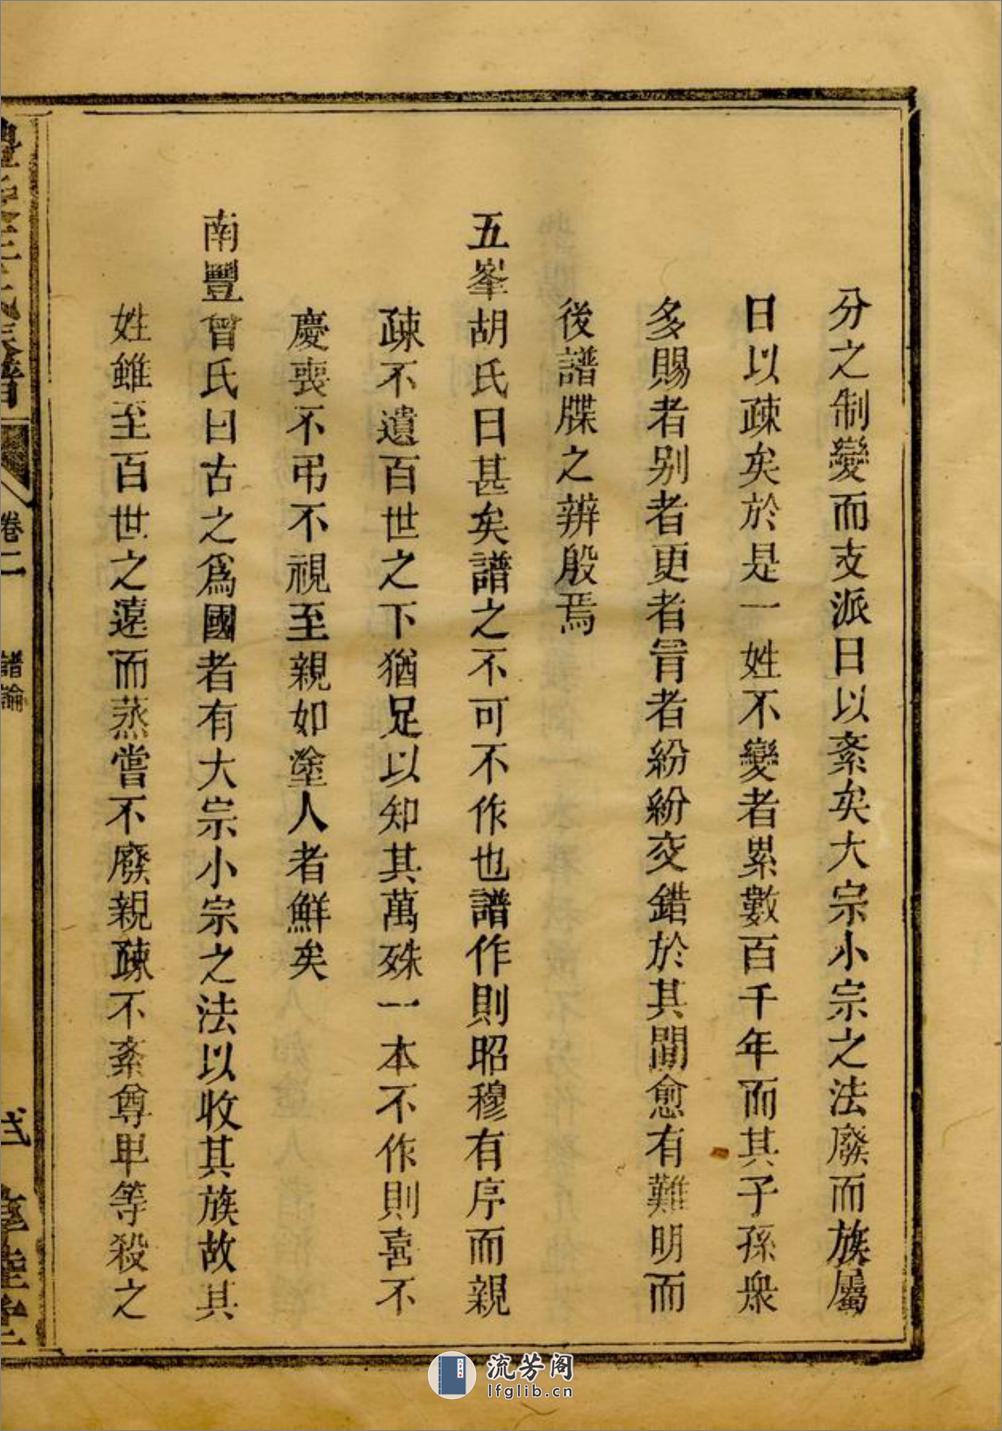 分之制變而支派日以紊矣大宗小宗之法廢而族屬
日以疎矣於是一姓不變者累數百千年而其子孫衆
多賜者别者更者冐者紛紛交錯於其間愈有難明而
後譜牒之辨殷焉
五峯胡氏曰甚矣譜之不可不作也譜作則昭穆有序而親
疎不遺百世之下猶足以知其萬殊一本不作則喜不
慶喪不弔不視至親如塗人者鮮矣
南豐曾氏曰古之爲國者有大宗小宗之法以收其族故其
姓雖至百世之遠而蒸嘗不廢親疎不紊尊卑等殺之
卷二
譜論
弍
流芳阁
lfglib.cn